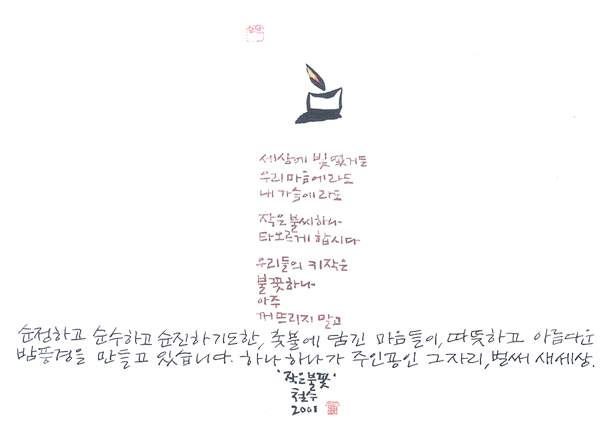 세상에 빛 없거든
우리 마음에라도
내 가슴에라도
작은 불씨하나
타오르게 합시다
우리들의 키작은
불꽃하나
아주
꺼뜨리지 말고
순정하고 순수하고 순진하기도한, 촛불에 담긴 마음들이, 따뜻하고 아름다운
밤풍경을 만들고 있습니다. 하나 하나가 주인공인 그자리, 벌써 새세상.
'작은불꽃'
철수
2001